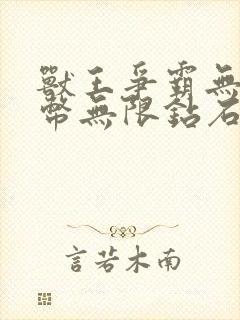 獸王爭霸無
幣無限鉆石
言若木南